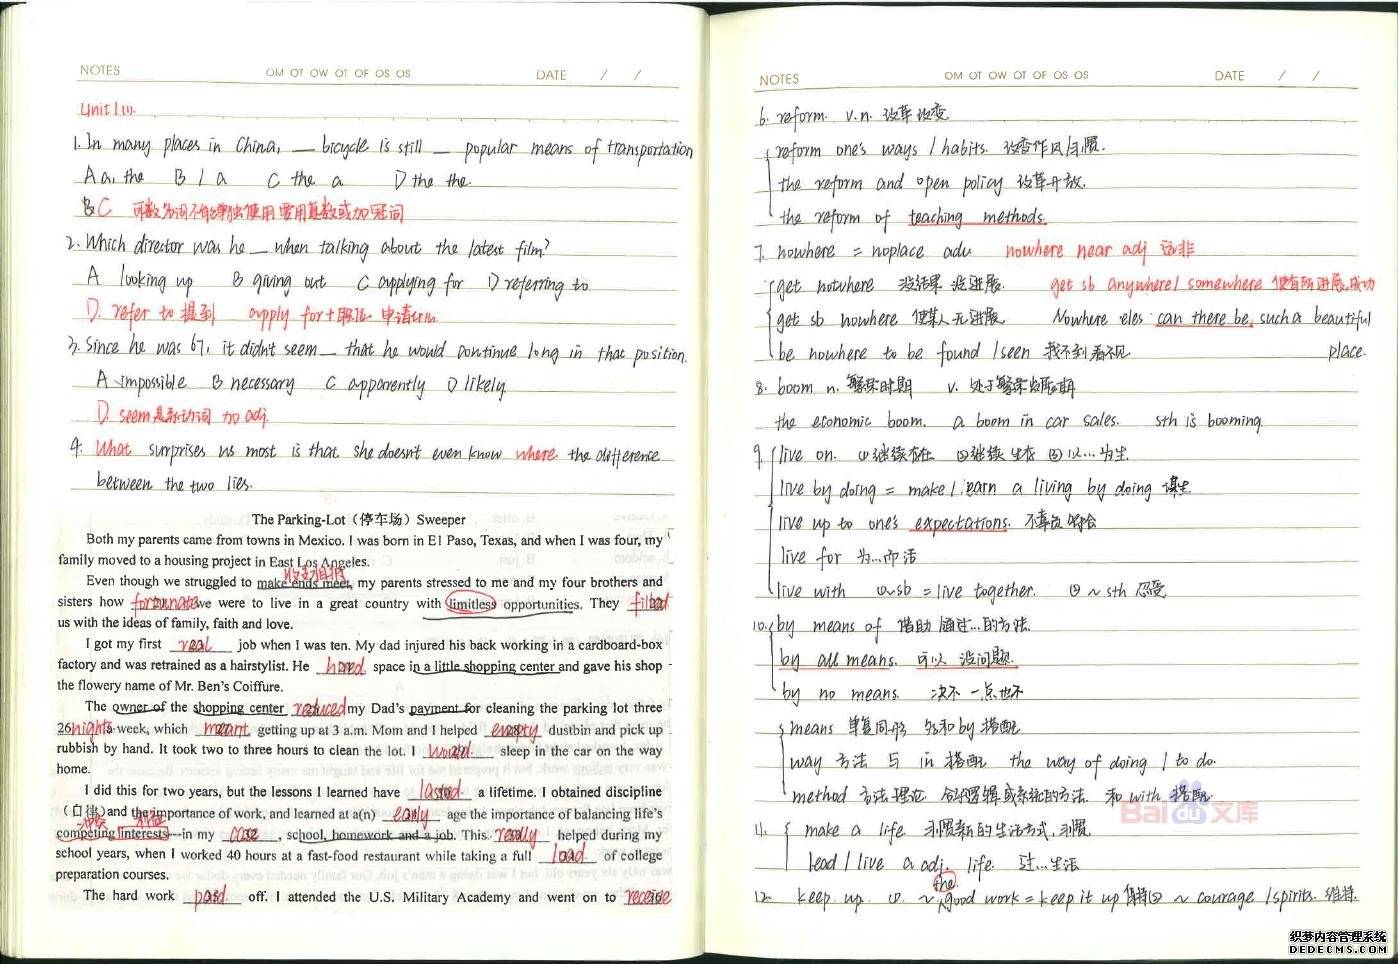 NOTES OM OT OW OT OF OS OS DATE / /
Unit 1 (1).
1. In many places in China, __ bicycle is still __ popular means of transportation
A a, the B / a C the a D the the.
B C 可数名词不能单独使用 要用复数或加冠词
2. Which director was he __ when talking about the latest film?
A looking up B giving out C applying for D referring to
D. refer to 提到 apply for+职位 申请
3. Since he was 67, it didn't seem __ that he would continue long in that position.
A impossible B necessary C apparently D likely
D. seem 是系动词 加 adj.
4. What surprises us most is that she doesn't even know where the difference
between the two lies.
The Parking-Lot (停车场) Sweeper
Both my parents came from towns in Mexico. I was born in El Paso, Texas, and when I was four, my
family moved to a housing project in East Los Angeles.
收支相抵
Even though we struggled to make ends meet, my parents stressed to me and my four brothers and
sisters how fortunate we were to live in a great country with limitless opportunities. They filled
us with the ideas of family, faith and love.
I got my first real job when I was ten. My dad injured his back working in a cardboard-box
factory and was retrained as a hairstylist. He hired space in a little shopping center and gave his shop
the flowery name of Mr. Ben's Coiffure.
The owner of the shopping center reduced my Dad's payment for cleaning the parking lot three
26 nights a week, which meant getting up at 3 a.m. Mom and I helped empty dustbin and pick up
rubbish by hand. It took two to three hours to clean the lot. I would sleep in the car on the way
home.
I did this for two years, but the lessons I learned have lasted a lifetime. I obtained discipline
(自律) and the importance of work, and learned at a(n) early age the importance of balancing life's
competing interests—in my case, school, homework and a job. This really helped during my
school years, when I worked 40 hours at a fast-food restaurant while taking a full load of college
preparation courses.
The hard work paid off. I attended the U.S. Military Academy and went on to receive
NOTES OM OT OW OT OF OS OS DATE / /
6. reform. v.n. 改革 改变
reform one's ways / habits. 改变作风/习惯.
the reform and open policy 改革开放.
the reform of teaching methods.
7. nowhere = noplace adv nowhere near adj 远非
get nowhere 没结果 没进展. get sb anywhere/ somewhere 使有所进展,成功
get sb nowhere 使某人无进展 Nowhere eles can there be, such a beautiful
be nowhere to be found / seen 找不到 看不见 place.
8. boom n. 繁荣时期 v. 处于繁荣发展期
the economic boom. a boom in car sales. sth is booming.
9. live on. ①继续存在 ②继续生存 ③以…为生.
live by doing = make / earn a living by doing 谋生
live up to one's expectations. 不辜负
live for 为…而活
live with ①~sb = live together. ② ~ sth 忍受
10. by means of 借助 通过…的方法.
by all means. 可以 没问题.
by no means. 决不 一点也不
means 单复同形 多和 by 搭配
way 方法 与 in 搭配 the way of doing / to do.
method 方法理论 合乎逻辑或系统的方法. 和 with 搭配.
Bai 文库
11. make a life 习惯新的生活方式,习惯.
lead / live a adj. life. 过…生活
the
12. keep up. ①. ~ good work = keep it up 保持 ② ~ courage / spirits. 维持.
织梦内容管理系统
DEDECMS.COM